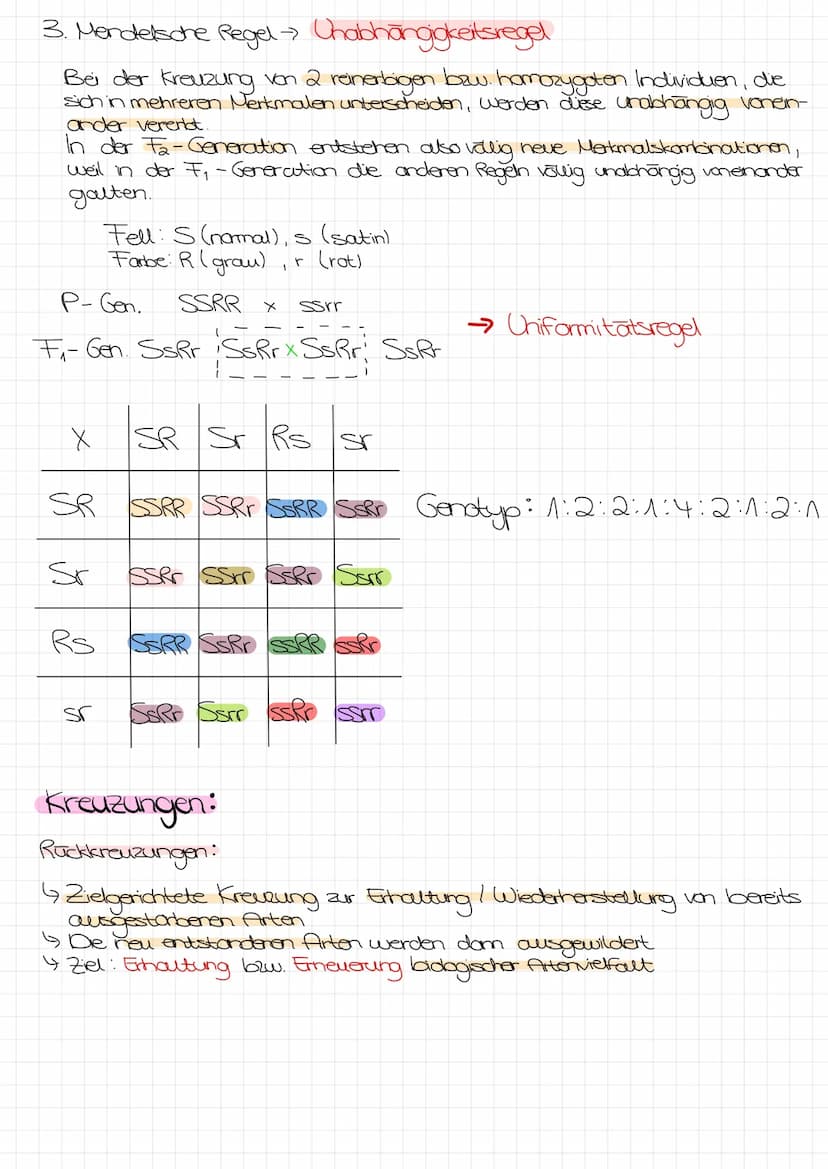 3. Mendelsche Regel → Unabhängigkeitsregel
Bei der Kreuzung von 2 reinerbigen bzw. homozygoten Individuen, die
sich in mehreren Merkmalen unterscheiden, werden diese unabhängig vonein-
ander vererbt.
In der F2-Generation entstehen also völlig neue Merkmalskombinationen,
weil in der F1-Generation die anderen Regeln völlig unabhängig voneinander
galten.
Fell: S (normal), s (satin)
Farbe: R (grau), r (rot)
P-Gen. SSRR x ssrr
→ Uniformitätsregel
F1-Gen. SsRr SsRr x SsRr SsRr
X SR Sr Rs sr
SR SSRR SSRr SsRR SsRr Genotyp: 1:2:2:1:4:2:1:2:1
Sr SSRr SSrr SsRr Ssrr
Rs SsRR SsRr ssRR ssRr
sr SsRr Ssrr ssRr ssrr
Kreuzungen:
Rückkreuzungen:
↳ Zielgerichtete Kreuzung zur Erhaltung / Wiederherstellung von bereits
ausgestorbenen Arten
↳ Die neu entstandenen Arten werden dann ausgewildert
↳ Ziel: Erhaltung bzw. Erneuerung biologischer Artenvielfalt